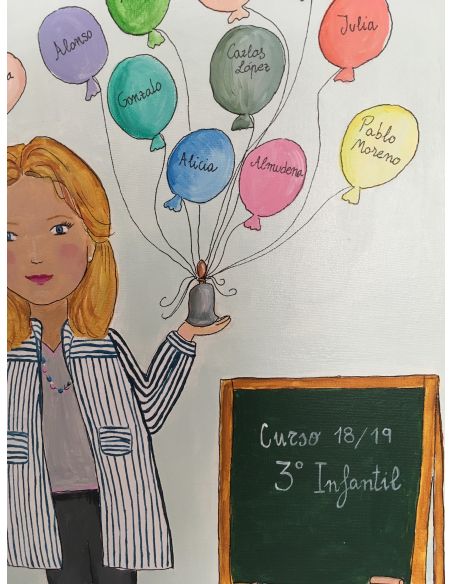 Alonso
Carlos
López
Julia
Gonzalo
Pablo
Moreno
Alicia
Almudena
Curso 18/19
3º Infantil